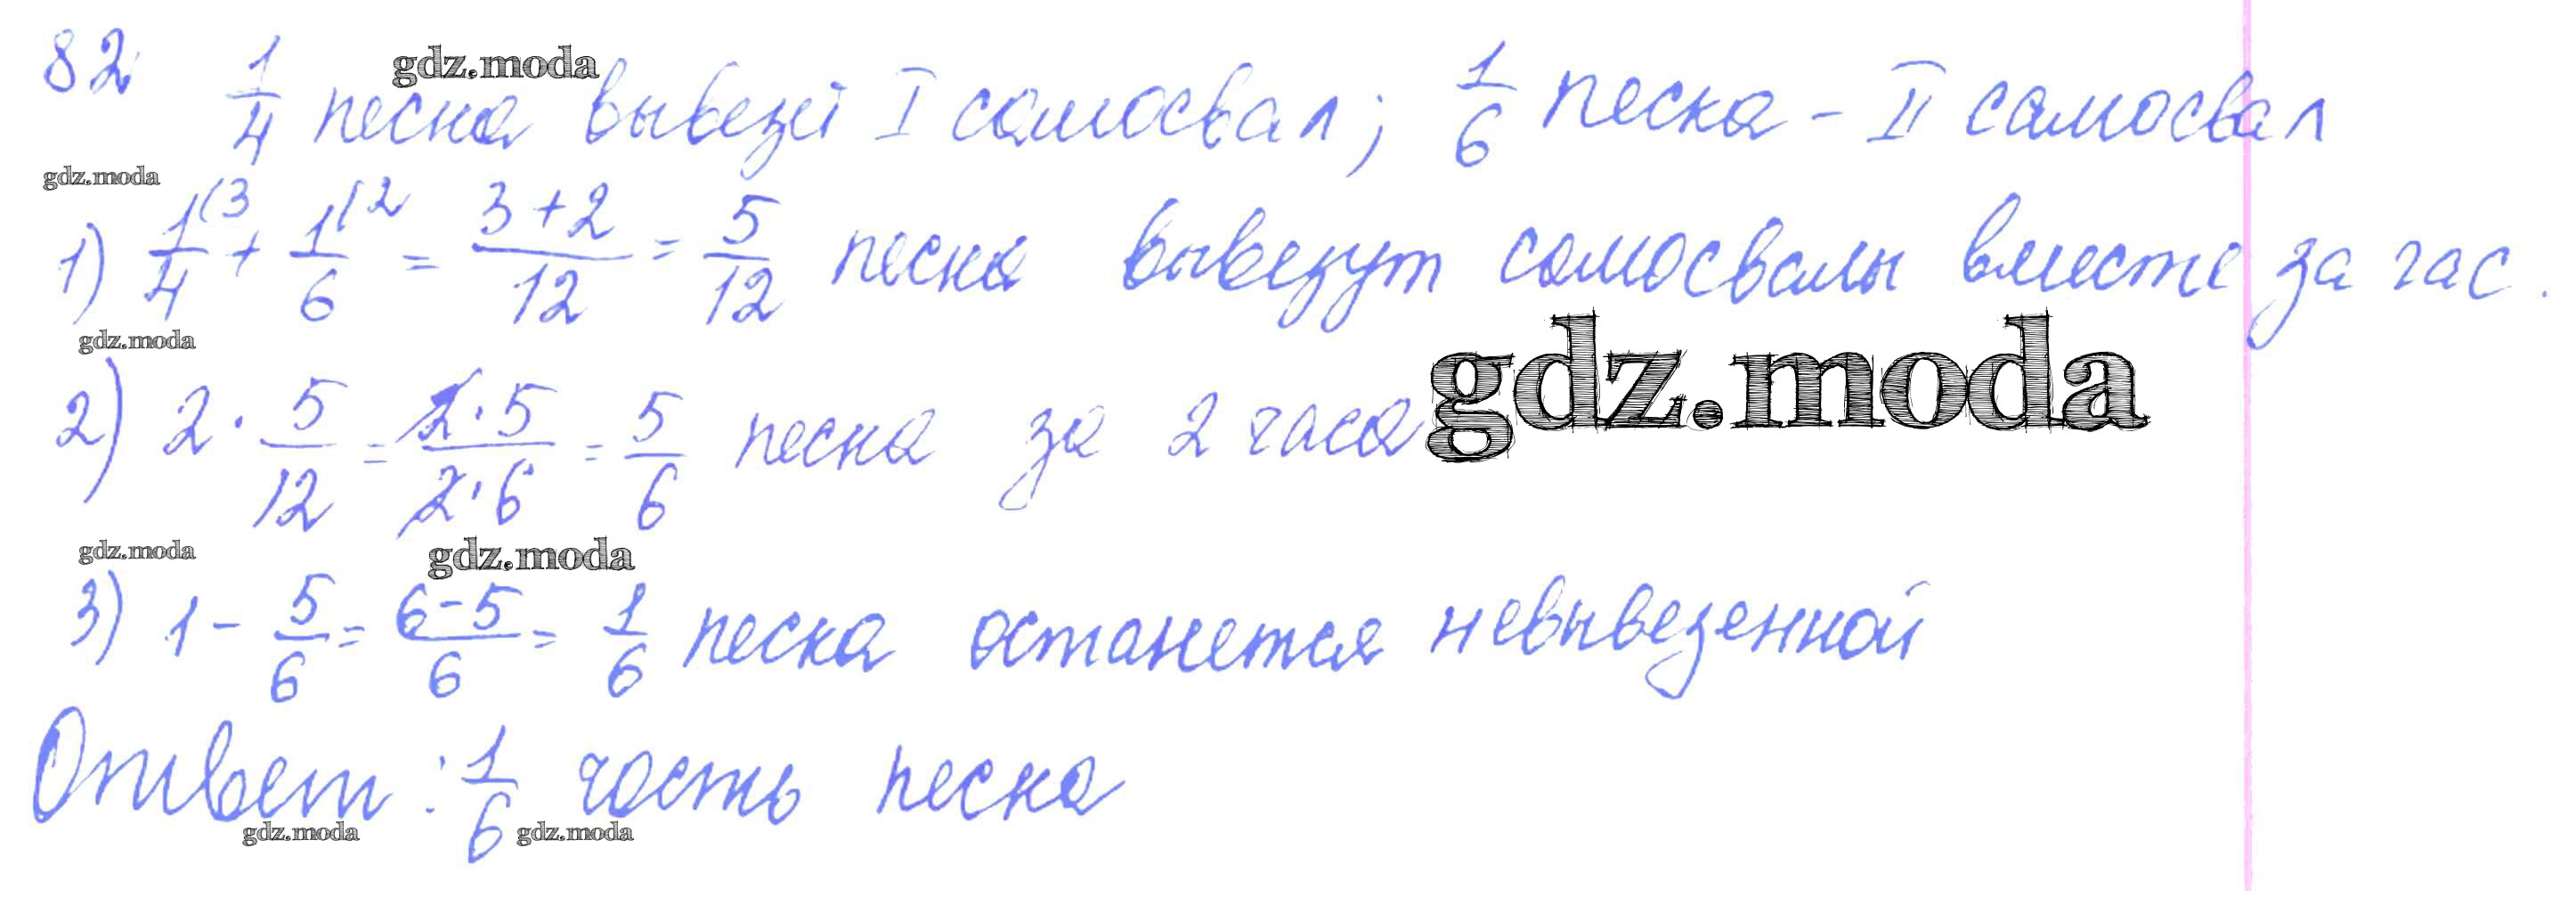 82 1/4 песка вывезет I самосвал; 1/6 песка - II самосвал
gdz.moda
gdz.moda
1) 1/4 (3 + 1/6 (2 = (3+2)/12 = 5/12 песка вывезут самосвалы вместе за час.
gdz.moda
gdz.moda
2) 2 · 5/12 = (2·5)/(2·6) = 5/6 песка за 2 часа
gdz.moda
gdz.moda
3) 1 - 5/6 = (6-5)/6 = 1/6 песка останется невывезенной
Ответ: 1/6 часть песка
gdz.moda
gdz.moda